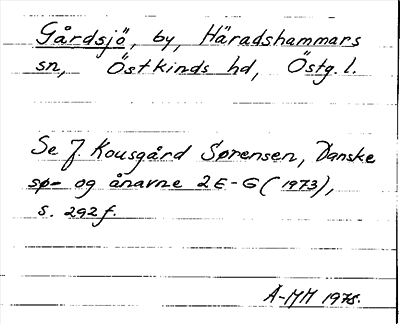 Gårdsjö, by, Häradshammars
sn, Östkinds hd, Östg. l.
Se J. Kousgård Sørensen, Danske
sø- og ånavne 2 E-G (1973),
s. 292 f.
A-MM 1978.